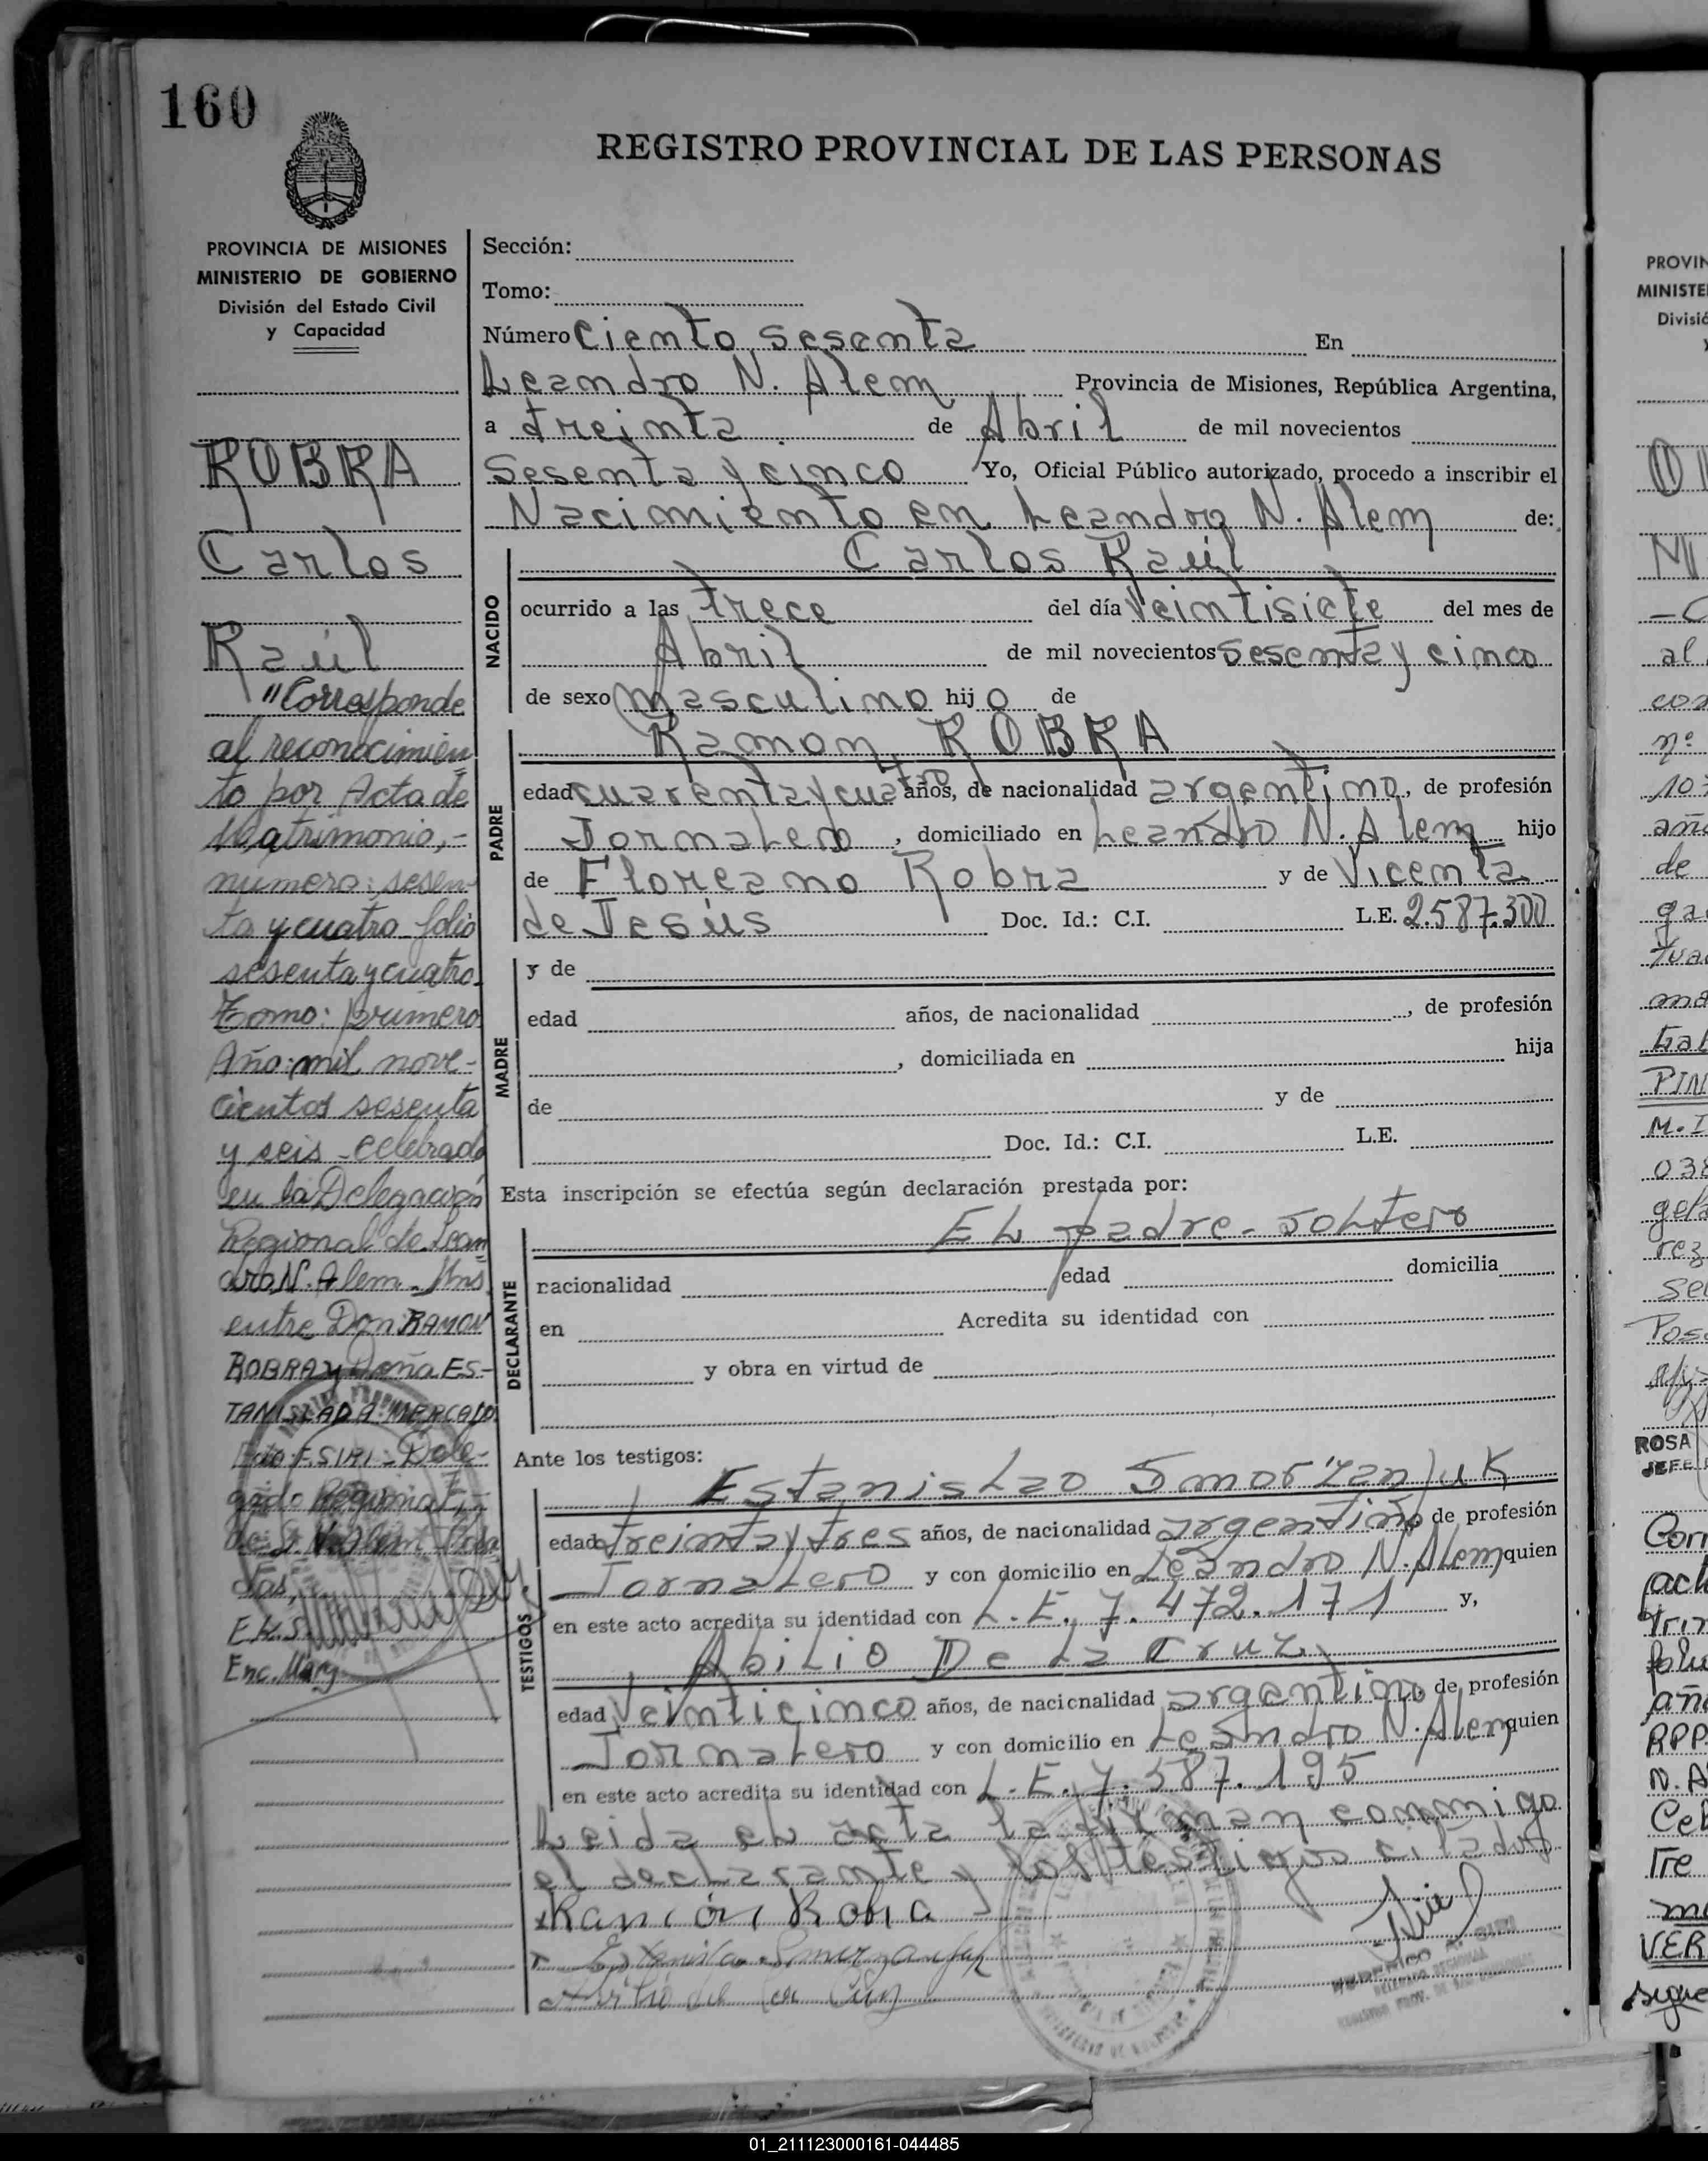 160
REGISTRO PROVINCIAL DE LAS PERSONAS
PROVINCIA DE MISIONES
MINISTERIO DE GOBIERNO
División del Estado Civil
y Capacidad
ROBRA
Carlos
Raúl
"Corresponde
al reconocimien
to por Acta de
Matrimonio,-
número: sesen-
ta y cuatro folio
sesenta y cuatro.
Tomo: primero
Año: mil nove-
cientos sesenta
y seis - celebrado
en la Delegación
Regional de Lean
dro N. Alem - Mns.
entre Don RAMON
ROBRA y Doña ES-
TANISLADA MERCADO.
Fdo: F. SIRI - Dele-
gado Regional
Enc. Marg
Sección:
Tomo:
Número Ciento sesenta En
Leandro N. Alem Provincia de Misiones, República Argentina,
a treinta de Abril de mil novecientos
Sesenta y cinco Yo, Oficial Público autorizado, procedo a inscribir el
Nacimiento en Leandro N. Alem de:
NACIDO
Carlos Raúl
ocurrido a las trece del día Veintisiete del mes de
Abril de mil novecientos Sesenta y cinco
de sexo masculino hijo de
PADRE
Ramon ROBRA
edad cuarenta y cuatro años, de nacionalidad argentino, de profesión
Jornalero, domiciliado en Leandro N. Alem hijo
de Floreano Robra y de Vicenta
de Jesús Doc. Id.: C.I. L.E. 2.587.300
MADRE
y de
edad años, de nacionalidad , de profesión
, domiciliada en hija
de y de
Doc. Id.: C.I. L.E.
Esta inscripción se efectúa según declaración prestada por:
DECLARANTE
El padre - soltero
nacionalidad edad domicilia
en Acredita su identidad con
y obra en virtud de
Ante los testigos:
TESTIGOS
Estanislao Smorzanjuk
edad treinta y tres años, de nacionalidad argentino de profesión
Jornalero y con domicilio en Leandro N. Alem quien
en este acto acredita su identidad con L.E. 7.472.171 y,
Abilio De La Cruz
edad Veinticinco años, de nacionalidad argentino de profesión
Jornalero y con domicilio en Leandro N. Alem quien
en este acto acredita su identidad con L.E. 7.587.195
Leida el acta la firman conmigo
el declarante y los testigos citados
Ramón Robra
01_211123000161-044485